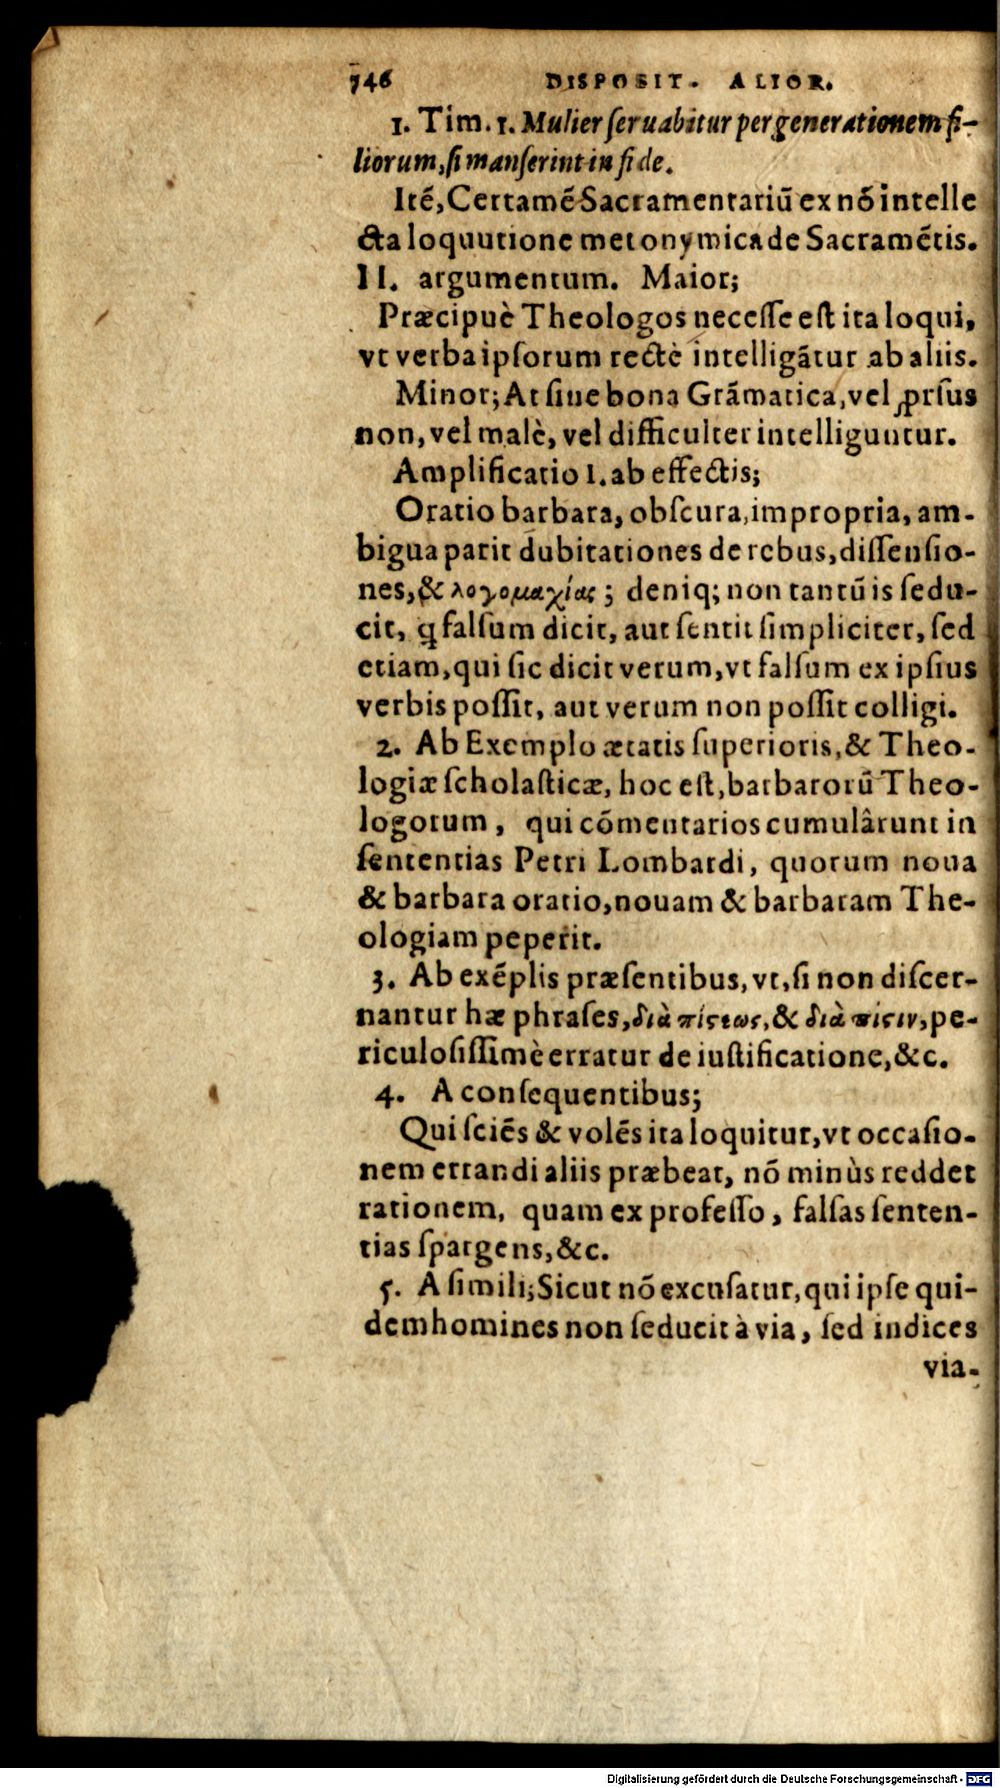 746 DISPOSIT. ALIOR.
1. Tim. 1. Mulier ſeruabitur per generationem fi-
liorum, ſi manſerint in fide.
Itē, Certamē Sacramentariū ex nō intelle
cta loquutione metonymica de Sacramētis.
II. argumentum. Maior;
Præcipuè Theologos neceſſe eſt ita loqui,
vt verba ipſorum rectè intelligātur ab aliis.
Minor; At ſine bona Grāmatica, vel ꝓrſus
non, vel malè, vel difficulter intelliguntur.
Amplificatio 1. ab effectis;
Oratio barbara, obſcura, impropria, am-
bigua parit dubitationes de rebus, diſſenſio-
nes, & λογομαχίας; deniq; non tantū is ſedu-
cit, ꝗ falſum dicit, aut ſentit ſimpliciter, ſed
etiam, qui ſic dicit verum, vt falſum ex ipſius
verbis poſſit, aut verum non poſſit colligi.
2. Ab Exemplo ætatis ſuperioris, & Theo-
logiæ ſcholaſticæ, hoc eſt, barbarorū Theo-
logorum, qui cōmentarios cumulârunt in
ſententias Petri Lombardi, quorum noua
& barbara oratio, nouam & barbaram The-
ologiam peperit.
3. Ab exēplis præſentibus, vt, ſi non diſcer-
nantur hæ phraſes, διὰ πίϛεως, & διὰ πίϛιν, pe-
riculoſiſſimè erratur de iuſtificatione, &c.
4. A conſequentibus;
Qui ſciēs & volēs ita loquitur, vt occaſio-
nem errandi aliis præbeat, nō minùs reddet
rationem, quam ex profeſſo, falſas ſenten-
tias ſpargens, &c.
5. A ſimili; Sicut nō excuſatur, qui ipſe qui-
dem homines non ſeducit à via, ſed indices
via-
Digitalisierung gefördert durch die Deutsche Forschungsgemeinschaft - DFG